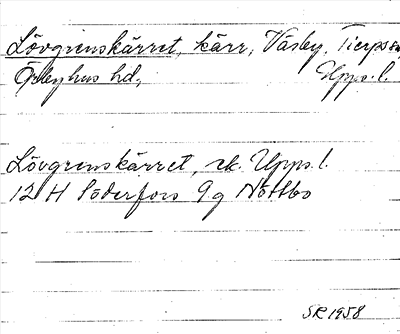 Lövgrenskärret, kärr, Väsby, Tierps sn,
Örbyhus hd, Upps. l.
Lövgrenskärret, ek. Upps. l.
12 H Söderfors 9g Nöttbo
SR 1958